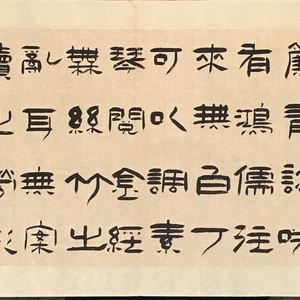 簾青談咲
有鴻儒往
來無白丁
可以調素
琴閱金經
無絲竹之
亂耳無案
牘之勞形